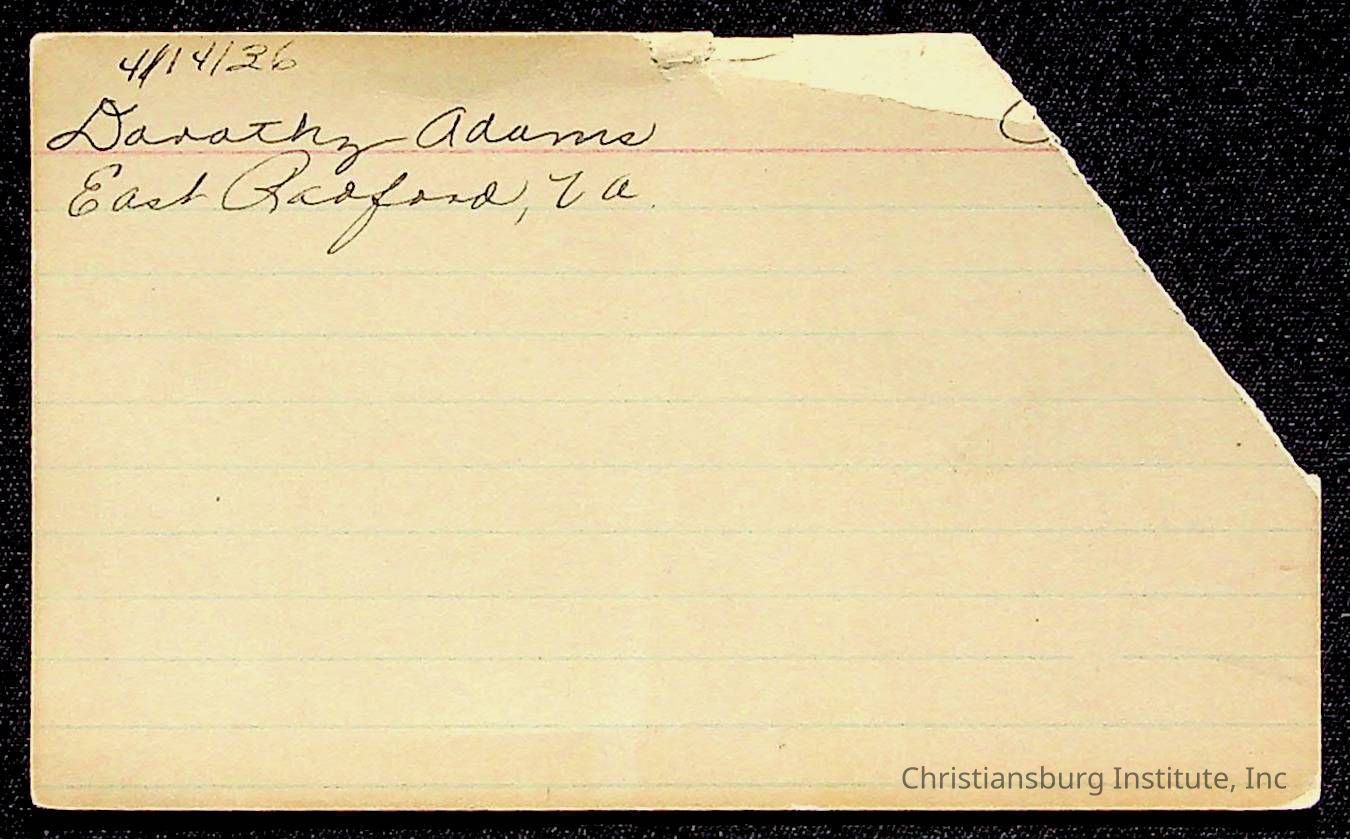 4/14/26
Dorothy Adams
East Radford, Va.
Christiansburg Institute, Inc